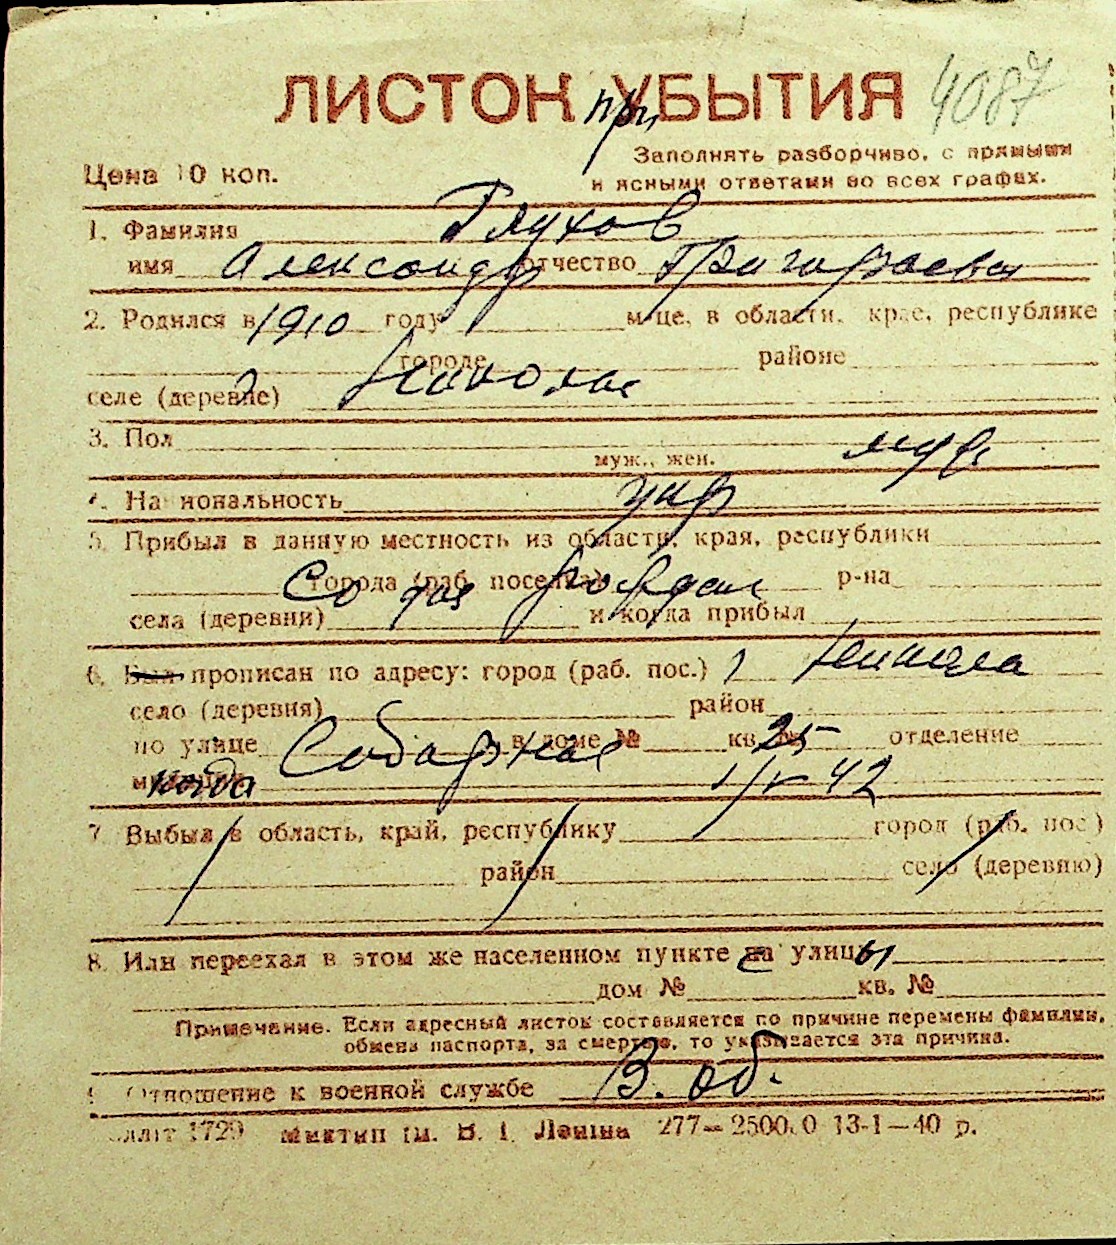 ЛИСТОК при УБЫТИЯ 4087
Заполнять разборчиво, с прямыми
Цена 10 коп. и ясными ответами во всех графах.
1. Фамилия Глухов
имя Александр отчество Григорьевич
2. Родился в 1910 году м-це, в области, крае, республике
городе районе
селе (деревне) г Никополе
3. Пол муж., жен. муж
4. Национальность укр
5. Прибыл в данную местность из области, края, республики
города (раб. поселка) р-на
села (деревни) и когда прибыл
6. Был прописан по адресу: город (раб. пос.) г
село (деревня) район
по улице Соборная в доме № кв. № 25 отделение
милиции когда 1/V 42
7. Выбыл в область, край, республику город (раб. пос.)
район село (деревню)
8. Или переехал в этом же населенном пункте с улицы
дом № кв. №
Примечание. Если адресный листок составляется по причине перемены фамилии,
обмена паспорта, за смертью, то указывается эта причина.
9. Отношение к военной службе В. об.
1729 277—2500.0 13-1—40 р.